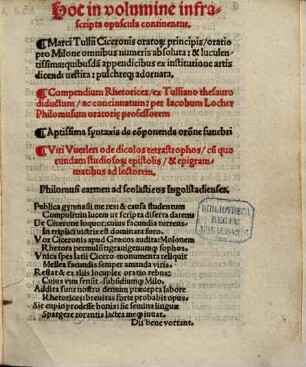 Hoc in volumine infra-
scripta opuscula continentur.
¶Marci Tullii Ciceronis oratoꝝ principis/oratio
pro Milone omnibus numeris absoluta: & luculen-
tissima: quibusdã appendicibus ex institutione artis
dicendi vestita: pulchreq; adornata.
¶Compendium Rhetorices/ex Tulliano thesauro
diductum/ac concinnatum: per Iacobum Locher
Philomusum oratorie professorem
¶Aptissima syntaxis de cõponenda orõne funebri
¶Viri Vuerleri ode dicolos tetrastrophos/cũ quo
rundam studiosoꝝ epistolis/& epigram-
matibus ad lectorem.
Philomusi carmen ad scolasticos Ingolstadienses.
Publica gymnasii me res: & causa studentum
Compulit: in lucem ut scripta diserta darem:
De Cicerone loquor: cuius facundia torrens
In triplici victrix est dominata foro.
Vox Ciceronis apud Grecos audita: Molonem
Rhetora permulsit: grauigenumq; sophos.
Vnica spes latii Cicero: monumenta reliquit
Mellea facundis semper amanda viris.
Restat & ex aliis locuplex oratio rebus:
Cuius vim sensit/subsidiumq; Milo.
Addita sunt nostro demum præcepta labore
Rhetorices: breuitas forte probabit opus.
Sic cupio prodesse bonis: sic semina linguæ
Spargere rorantis lactea meq; iuuat.
Dii bene vortant.
BIBLIOTHECA
REGIA
MONACENSIS.